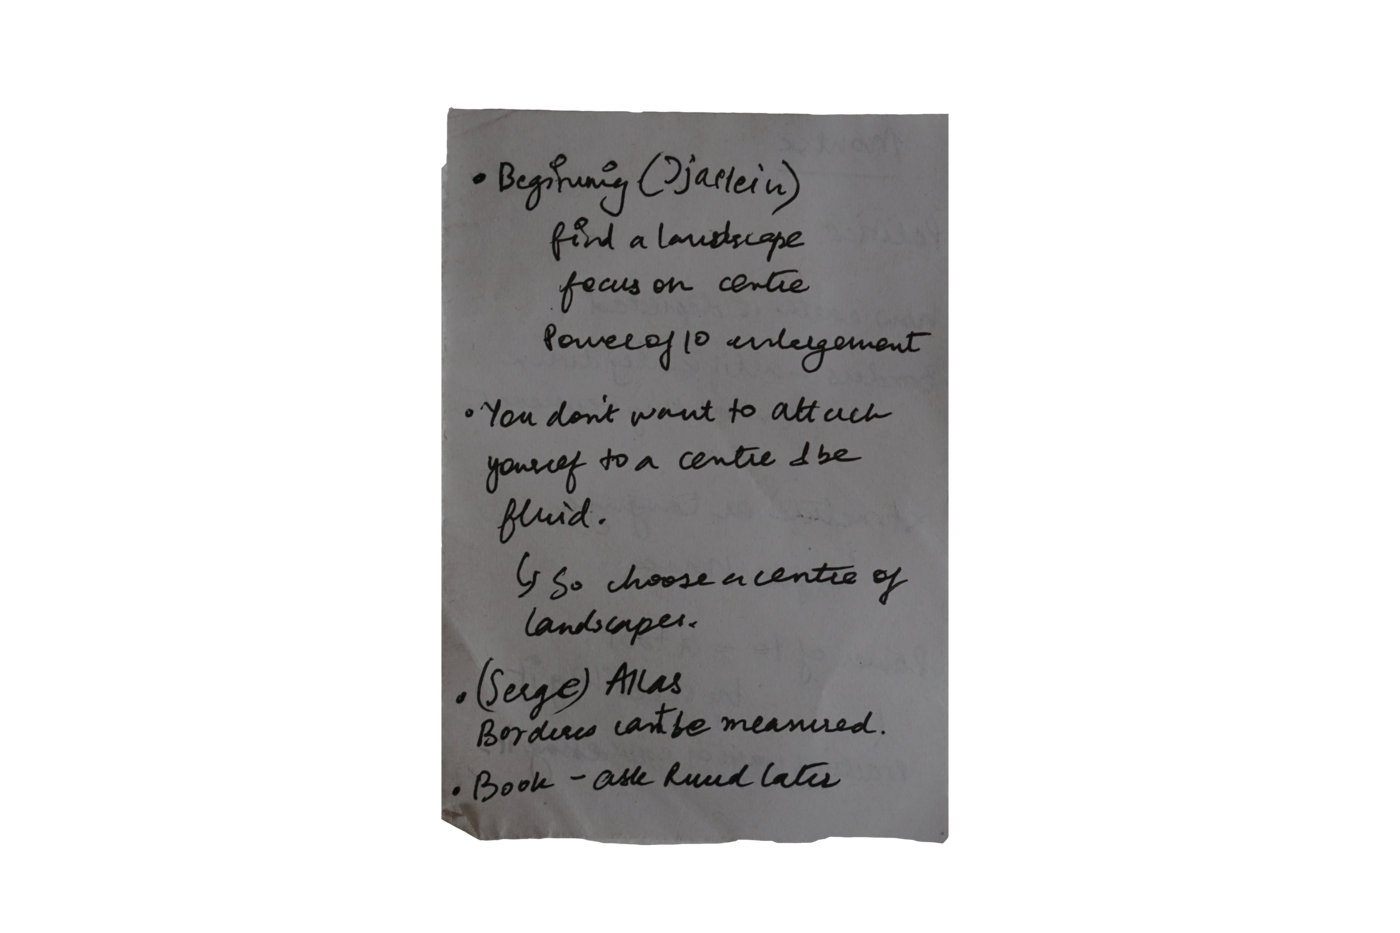 • Beginning (Djarlein)
find a landscape
focus on centre
Power of 10 enlargement
• You don't want to attach
yourself to a centre & be
fluid.
↳ So choose a centre of
landscapes.
• (Serge) Atlas
Borders can't be measured.
• Book - ask Ruud later